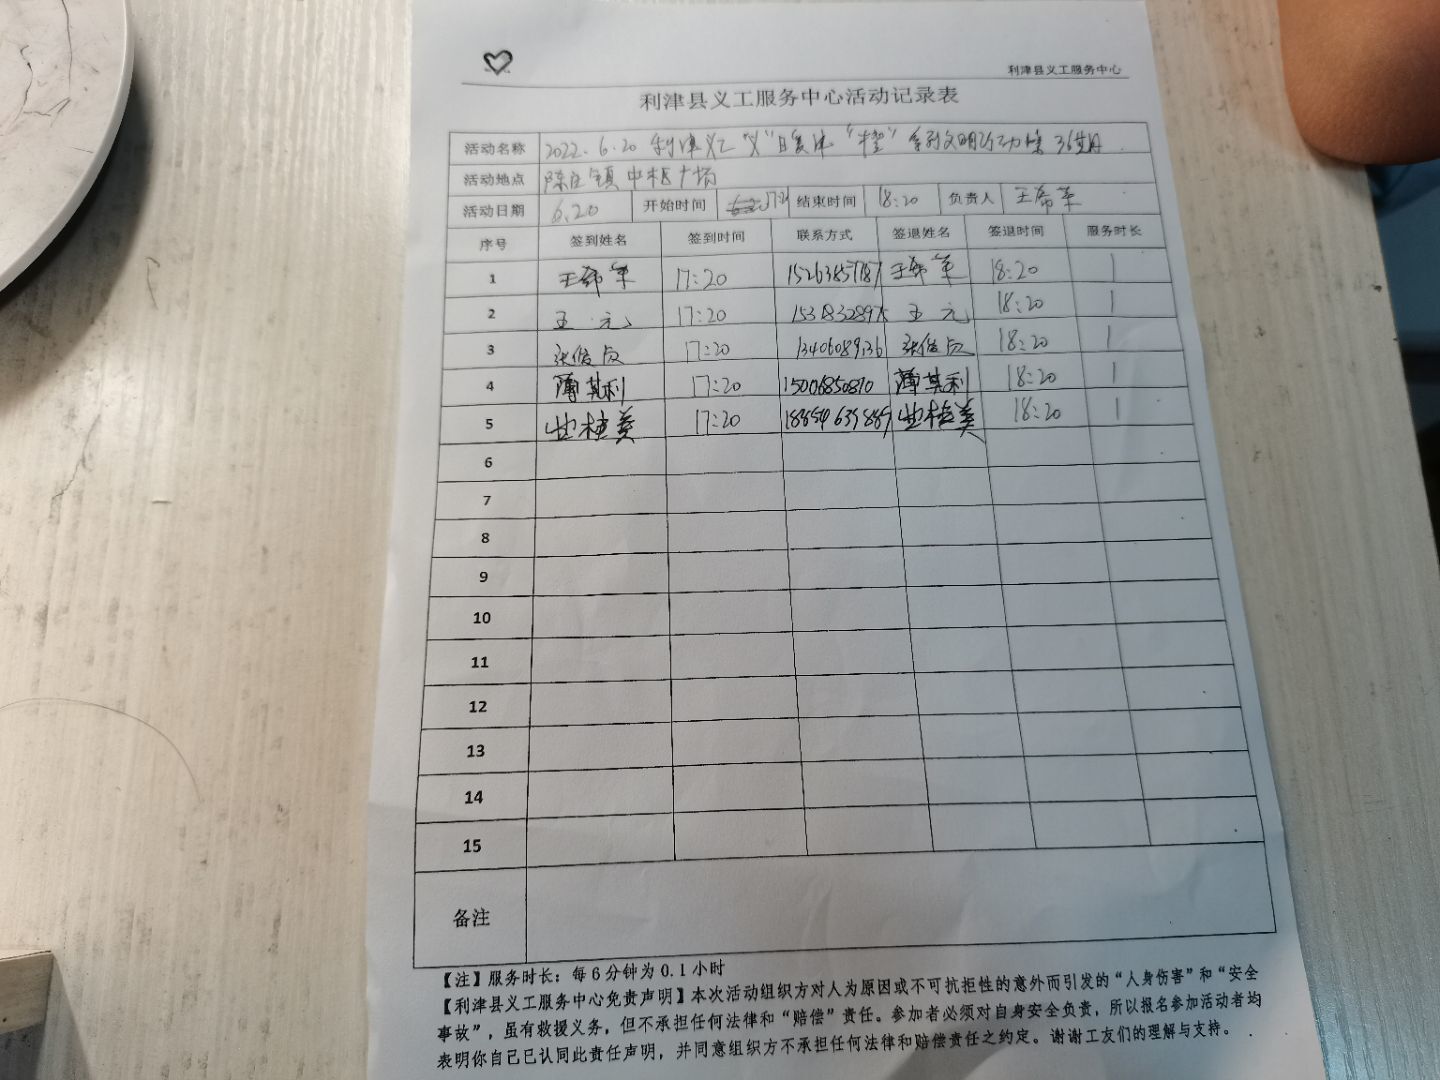 利津县义工服务中心
利津县义工服务中心活动记录表
活动名称 2022.6.20 利津义工“义”日复津“橙”系列文明行动第36期
活动地点 陈庄镇中心广场
活动日期 6.20 开始时间 结束时间 18:20 负责人 王希军
序号 签到姓名 签到时间 联系方式 签退姓名 签退时间 服务时长
1 王希军 17:20 王希军 18:20 1
2 王元 17:20 王元 18:20 1
3 17:20 18:20 1
4 薄其利 17:20 15006850810 薄其利 18:20 1
5 17:20 18:20 1
6
7
8
9
10
11
12
13
14
15
备注
【注】服务时长：每6分钟为0.1小时
【利津县义工服务中心免责声明】本次活动组织方对人为原因或不可抗拒性的意外而引发的“人身伤害”和“安全
事故”，虽有救援义务，但不承担任何法律和“赔偿”责任。参加者必须对自身安全负责，所以报名参加活动者均
表明你自己已认同此责任声明，并同意组织方不承担任何法律和赔偿责任之约定。谢谢工友们的理解与支持。